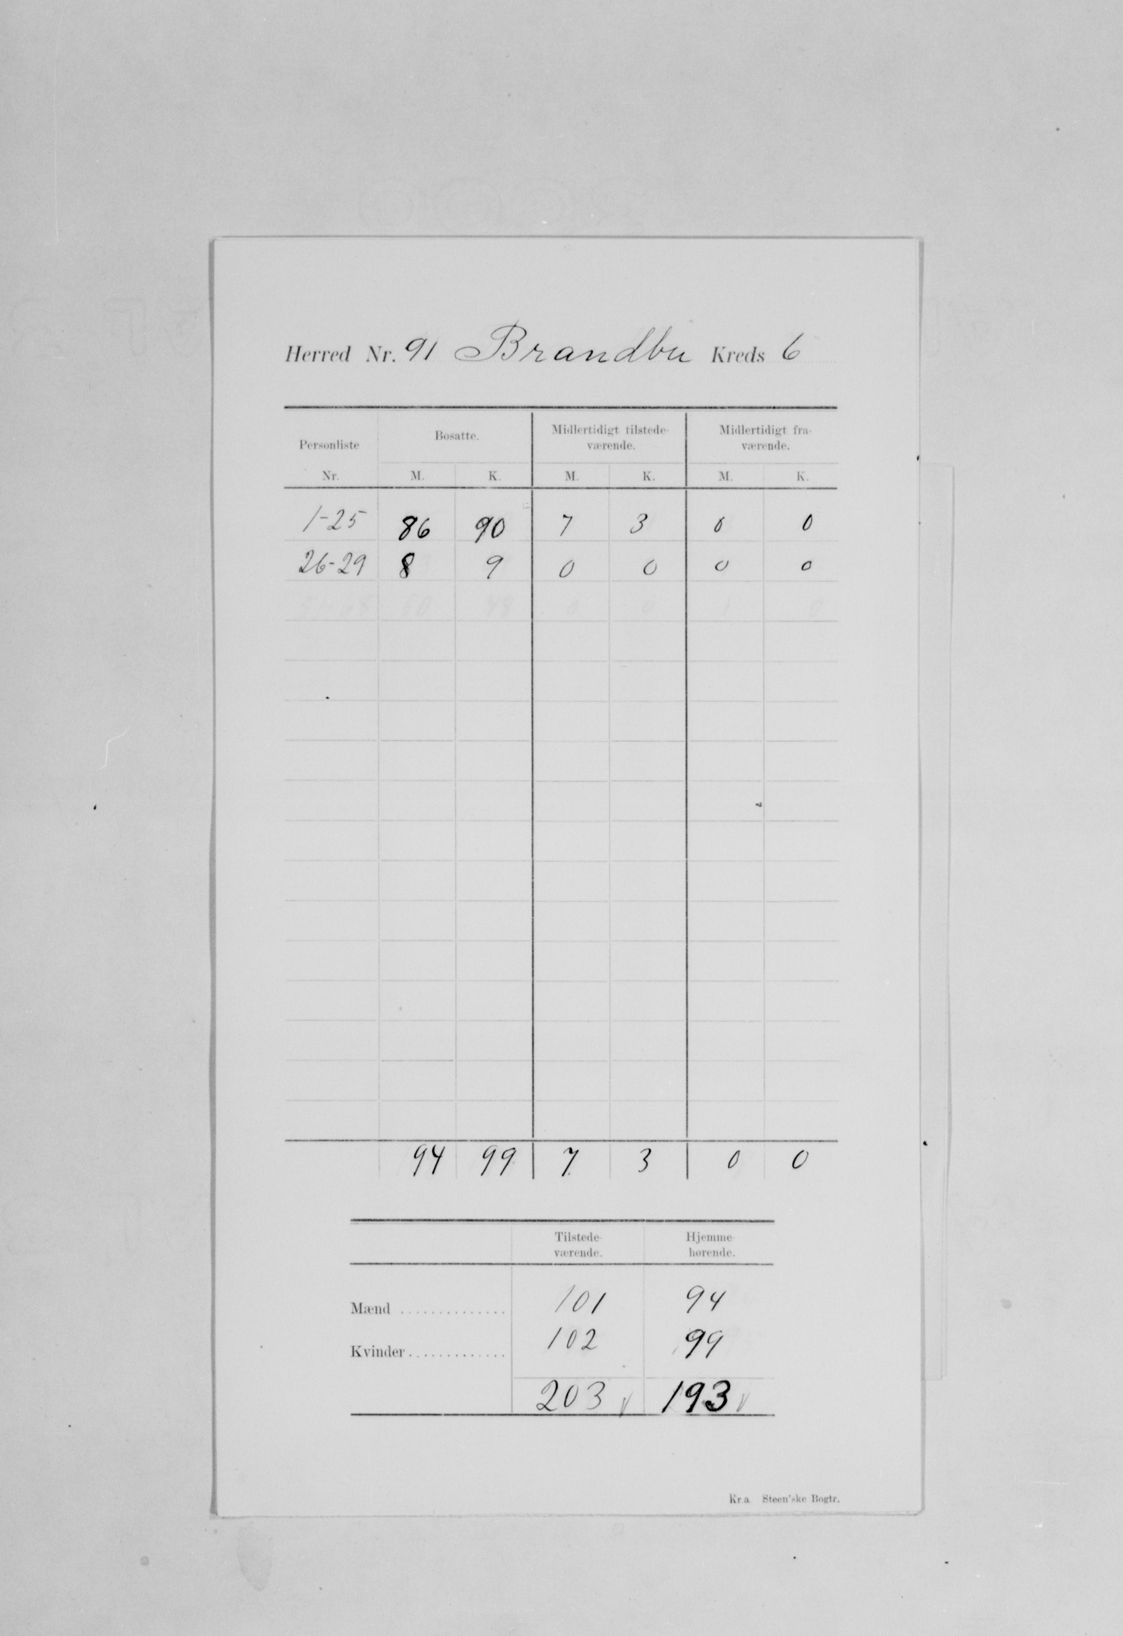 Herred Nr. 91 Brandbu Kreds 6
Personliste Bosatte. Midlertidigt tilstede- Midlertidigt fra-
værende. værende.
Nr. M. K. M. K. M. K.
1-25 86 90 7 3 0 0
26-29 8 9 0 0 0 0
94 99 7 3 0 0
Tilstede- Hjemme-
værende. hørende.
Mænd .............. 101 94
Kvinder ............. 102 99
203 193
Kr.a Steen'ske Bogtr.